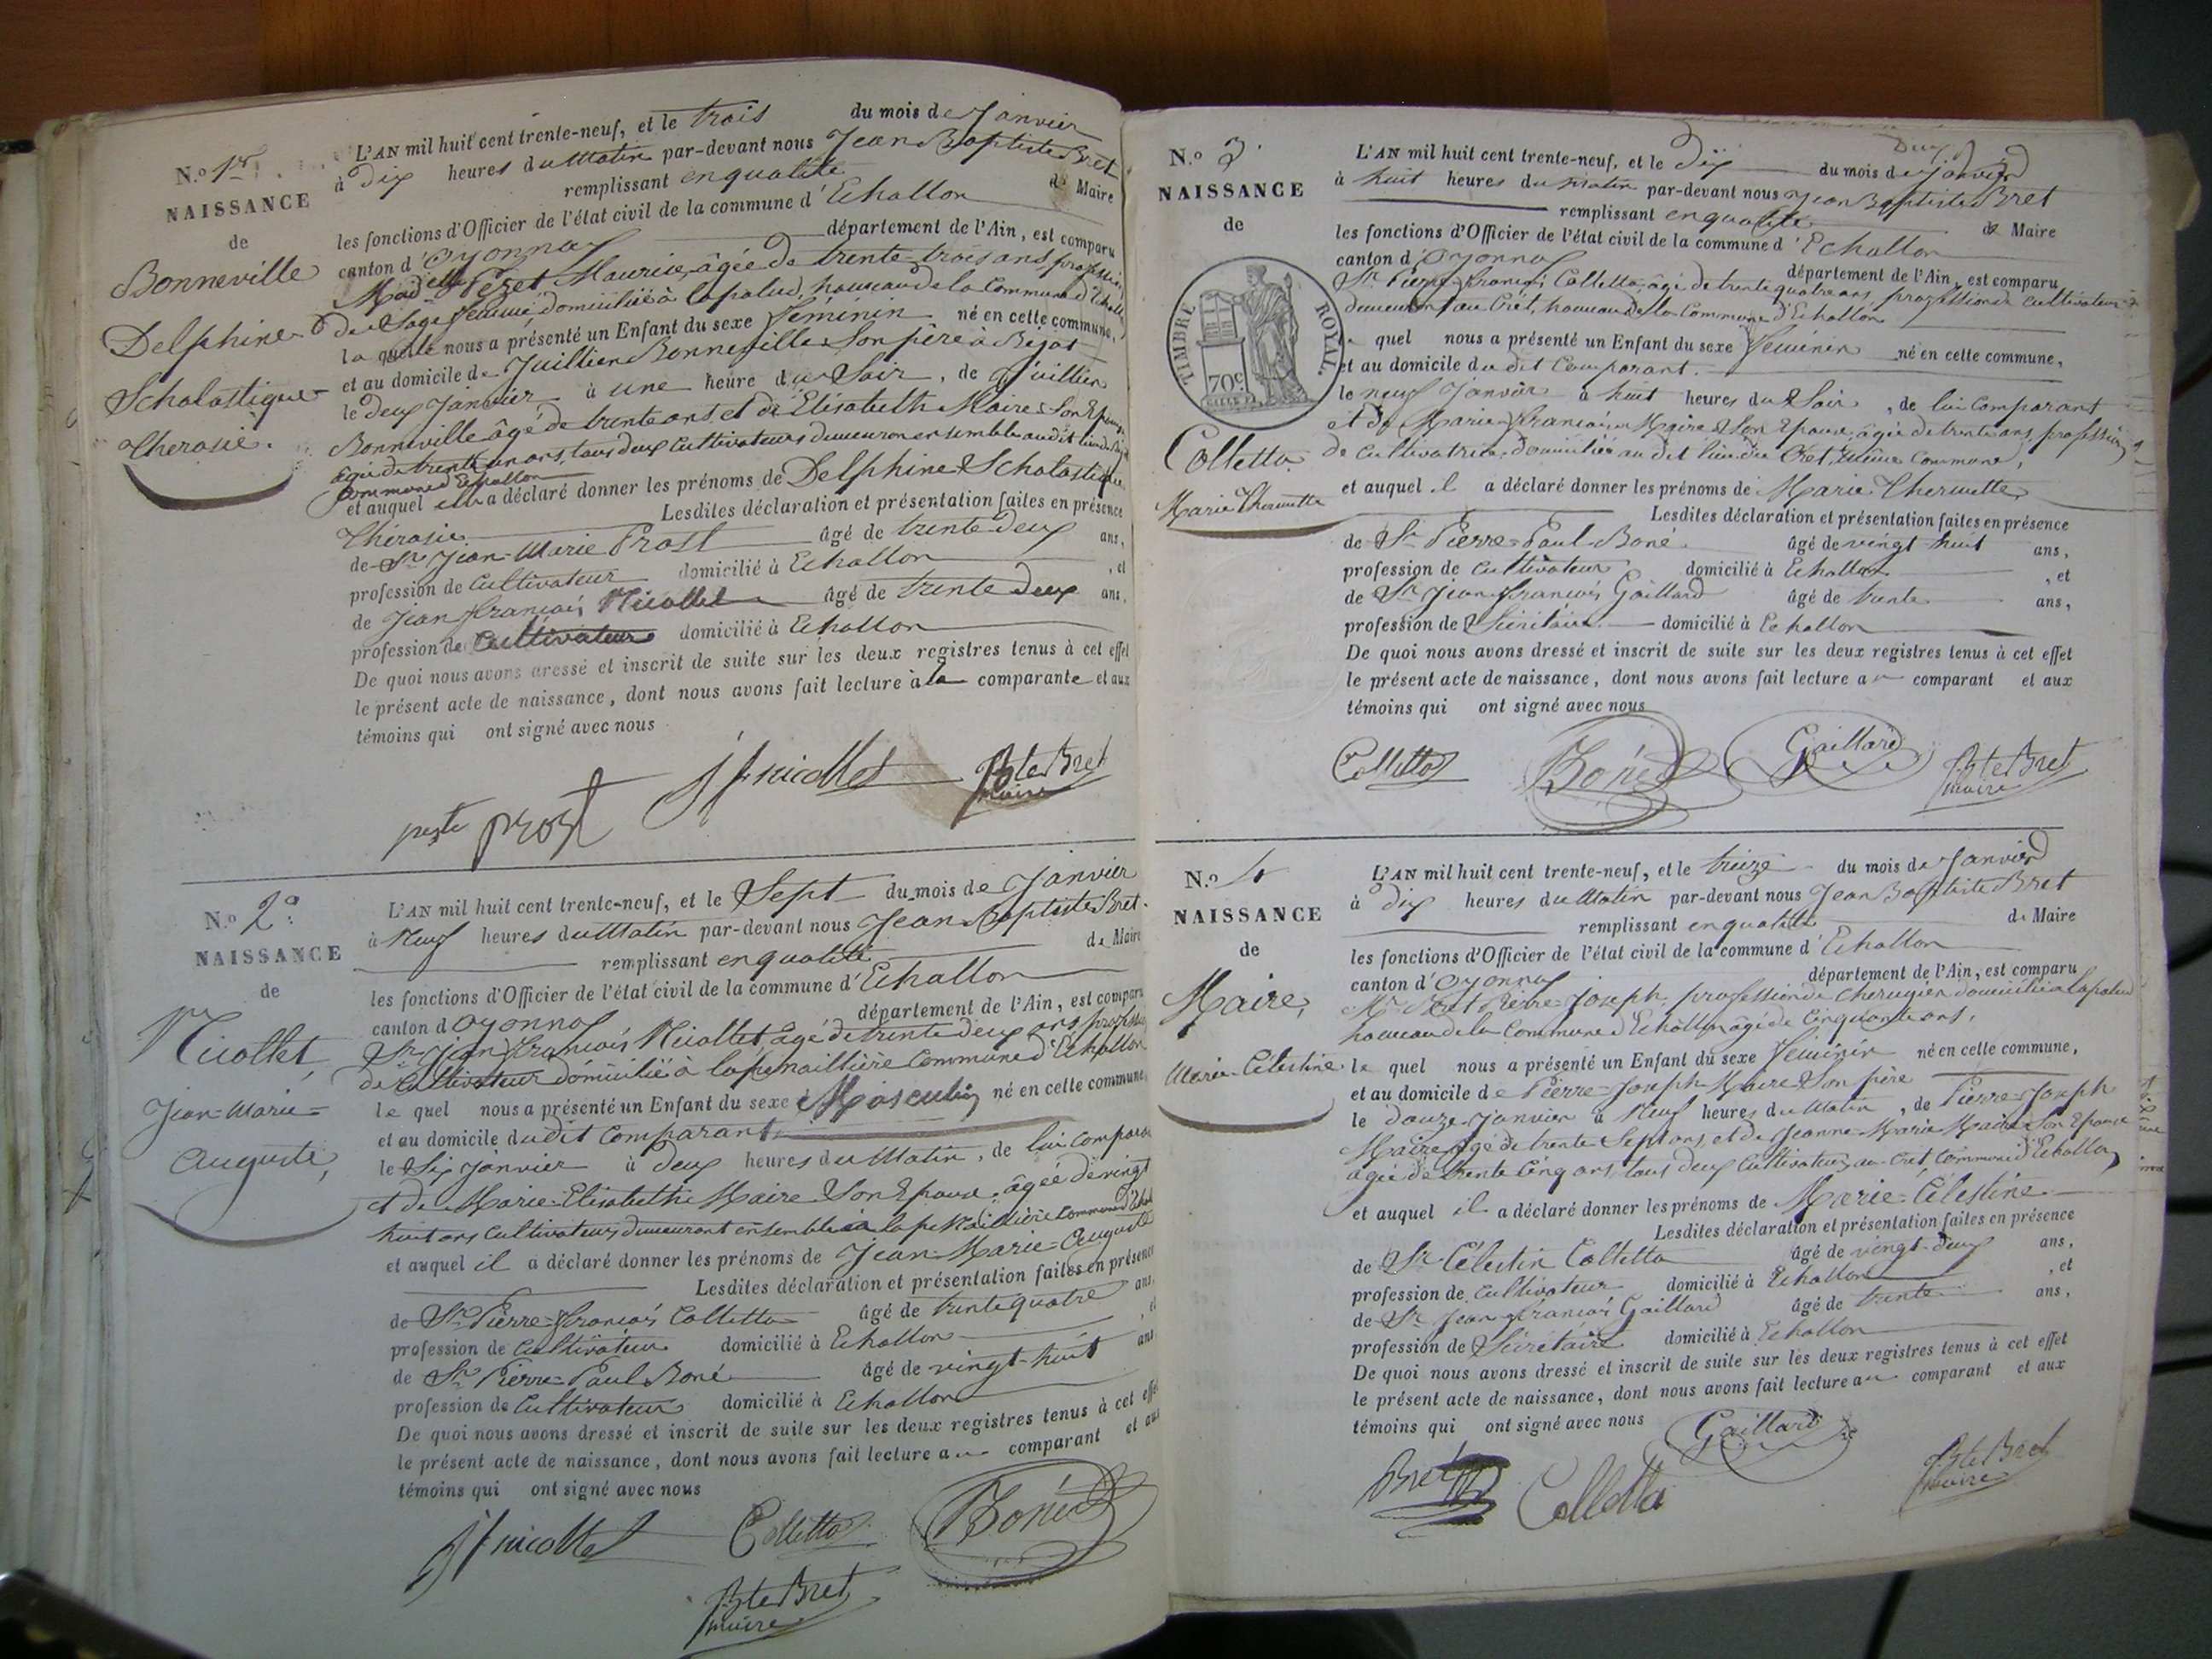 N.o 1er
NAISSANCE
de
Bonneville
Delphine
Scholastique
Therasie.
L'AN mil huit cent trente-neuf, et le trois du mois de Janvier
à dix heures du Matin par-devant nous Jean Baptiste Bret
remplissant en qualité de Maire
les fonctions d'Officier de l'état civil de la commune d'Echallon
canton d'Oyonnax département de l'Ain, est comparu
Mad.elle Maurice, âgée de trente-trois ans profession
de Sage femme domiciliée à lapalud, hameau de la Commune d'Echallon
la quelle nous a présenté un Enfant du sexe féminin né en cette commune,
et au domicile de Juillien Bonneville Son père à
le deux Janvier à une heure du Soir, de Juillien
Bonneville âgé de trente ans et de Elisabeth Maire Son Epouse
âgée de trente un ans, tous deux Cultivateurs demeurant ensemble au dit lieu
Commune d'Echallon
et auquel elle a déclaré donner les prénoms de Delphine Scholastique
Thérasie. Lesdites déclaration et présentation faites en présence
de Sr Jean-Marie Prost âgé de trente deux ans,
profession de Cultivateur domicilié à Echallon, et
de Jean François Nicollet âgé de trente deux ans,
profession de Cultivateur domicilié à Echallon
De quoi nous avons dressé et inscrit de suite sur les deux registres tenus à cet effet
le présent acte de naissance, dont nous avons fait lecture à la comparante et aux
témoins qui ont signé avec nous
prost
Jf nicollet
Bte Bret
maire
N.o 2e
NAISSANCE
de
Nicollet,
Jean-Marie=
Auguste,
L'AN mil huit cent trente-neuf, et le Sept du mois de Janvier
à Neuf heures du Matin par-devant nous Jean Baptiste Bret.
remplissant en qualité de Maire
les fonctions d'Officier de l'état civil de la commune d'Echallon
canton d'Oyonnax département de l'Ain, est comparu
Sr Jean François Nicollet âgé de trente deux ans profession
de Cultivateur domicilié à Commune d'Echallon
le quel nous a présenté un Enfant du sexe Masculin né en cette commune,
et au domicile dudit Comparant
le Six Janvier à deux heures du Matin, de lui Comparant
et de Marie-Elisabeth Maire Son Epouse, âgée de vingt
huit ans Cultivateurs demeurant ensemble à Commune d'Echallon
et auquel il a déclaré donner les prénoms de Jean-Marie-Auguste
Lesdites déclaration et présentation faites en présence
de Sr Pierre-François Colletta âgé de trente quatre ans,
profession de Cultivateur domicilié à Echallon, et
de Sr Pierre-Paul Boné âgé de vingt-huit ans
profession de Cultivateur domicilié à Echallon
De quoi nous avons dressé et inscrit de suite sur les deux registres tenus à cet effet
le présent acte de naissance, dont nous avons fait lecture au comparant et aux
témoins qui ont signé avec nous
Jf nicollet
Colletta
Boné
Bte Bret
maire
Deux
N.o 3
NAISSANCE
de
TIMBRE ROYAL
70c
Colletta
Marie Thermette
L'AN mil huit cent trente-neuf, et le dix du mois de Janvier
à huit heures du Matin par-devant nous Jean Baptiste Bret
remplissant en qualité de Maire
les fonctions d'Officier de l'état civil de la commune d'Echallon
canton d'Oyonnax département de l'Ain, est comparu
Sr Pierre François Colletta, âgé de trente quatre ans, profession de cultivateur
demeurant au Crêt, hameau de la Commune d'Echallon
le quel nous a présenté un Enfant du sexe féminin né en cette commune,
et au domicile du dit Comparant.
le neuf Janvier à huit heures du Soir, de lui Comparant
et de Marie-Françoise Maire Son Epouse, âgée de trente ans, profession
de Cultivatrice, domiciliée au dit lieu du Crêt, même Commune,
et auquel il a déclaré donner les prénoms de Marie Thermette
Lesdites déclaration et présentation faites en présence
de Sr Pierre-Paul Boné âgé de vingt huit ans,
profession de Cultivateur domicilié à Echallon, et
de Sr Jean François Gaillard âgé de trente ans,
profession de Secrétaire domicilié à Echallon
De quoi nous avons dressé et inscrit de suite sur les deux registres tenus à cet effet
le présent acte de naissance, dont nous avons fait lecture au comparant et aux
témoins qui ont signé avec nous
Colletta
Boné
Gaillard
Bte Bret
maire
N.o 4
NAISSANCE
de
Maire,
Marie-Célestine
L'AN mil huit cent trente-neuf, et le treize du mois de Janvier
à dix heures du Matin par-devant nous Jean Baptiste Bret
remplissant en qualité de Maire
les fonctions d'Officier de l'état civil de la commune d'Echallon
canton d'Oyonnax département de l'Ain, est comparu
Mr Bret Pierre-Joseph, profession de Cherugien domicilié à lapalud
hameau de la Commune d'Echallon âgé de Cinquante ans,
le quel nous a présenté un Enfant du sexe féminin né en cette commune,
et au domicile de Pierre-Joseph Maire Son père
le douze Janvier à Neuf heures du Matin, de Pierre-Joseph
Maire âgé de trente Sept ans, et de Jeanne-Marie Maire Son Epouse
âgée de trente Cinq ans, tous deux Cultivateurs au Crêt Commune d'Echallon
et auquel il a déclaré donner les prénoms de Marie-Célestine
Lesdites déclaration et présentation faites en présence
de Sr Célestin Colletta âgé de vingt-deux ans,
profession de Cultivateur domicilié à Echallon, et
de Sr Jean François Gaillard âgé de trente ans,
profession de Secrétaire domicilié à Echallon
De quoi nous avons dressé et inscrit de suite sur les deux registres tenus à cet effet
le présent acte de naissance, dont nous avons fait lecture au comparant et aux
témoins qui ont signé avec nous
Gaillard
Bret
Colletta
Bte Bret
maire